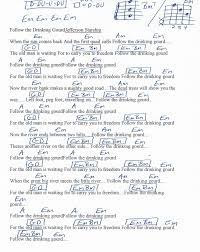 D-DU-U-DU
Bm7
Em Em Em Em
Follow the Drinking Gourd/Jefferson Starship
Em Am Em
When the sun comes back And the first quail calls Follow the drinking gourd
G-D Em Bm Em
The old man is waiting For to carry you to freedom Follow the drinking gourd
A Em A Em
Follow the drinking gourd Follow the drinking gourd
G-D Em Bm Em
For the old man is waiting For to carry you to freedom Follow the drinking gourd
Em Am Em
Now the river bank makes a mighty good road The dead trees will show you the
way Left foot, peg foot, travelling on Follow the drinking gourd
A Em A Em
Follow the drinking gourd Follow the drinking gourd
G-D Em Bm Em
For the old man is waiting For to carry you to freedom Follow the drinking gourd
Em Am Em
Now the river ends between two hills Follow the drinking gourd
G-D Em Bm Em
Theres another river on the other side Follow the drinking gourd
A Em A Em
Follow the drinking gourd Follow the drinking gourd
G-D Em Bm Em
For the old man is waiting For to carry you to freedom Follow the drinking gourd
Em Am Em
When the great big river meets the little river Follow the drinking gourd
G-D Em Bm Em
For the old man is waiting For to carry you to freedom Follow the drinking gourd
A Em A Em
Follow the drinking gourd Follow the drinking gourd
G-D Em Bm Em
For the old man is waiting For to carry you to freedom Follow the drinking gourd
Em Bm Em
For to carry you to freedom Follow the drinking gourd